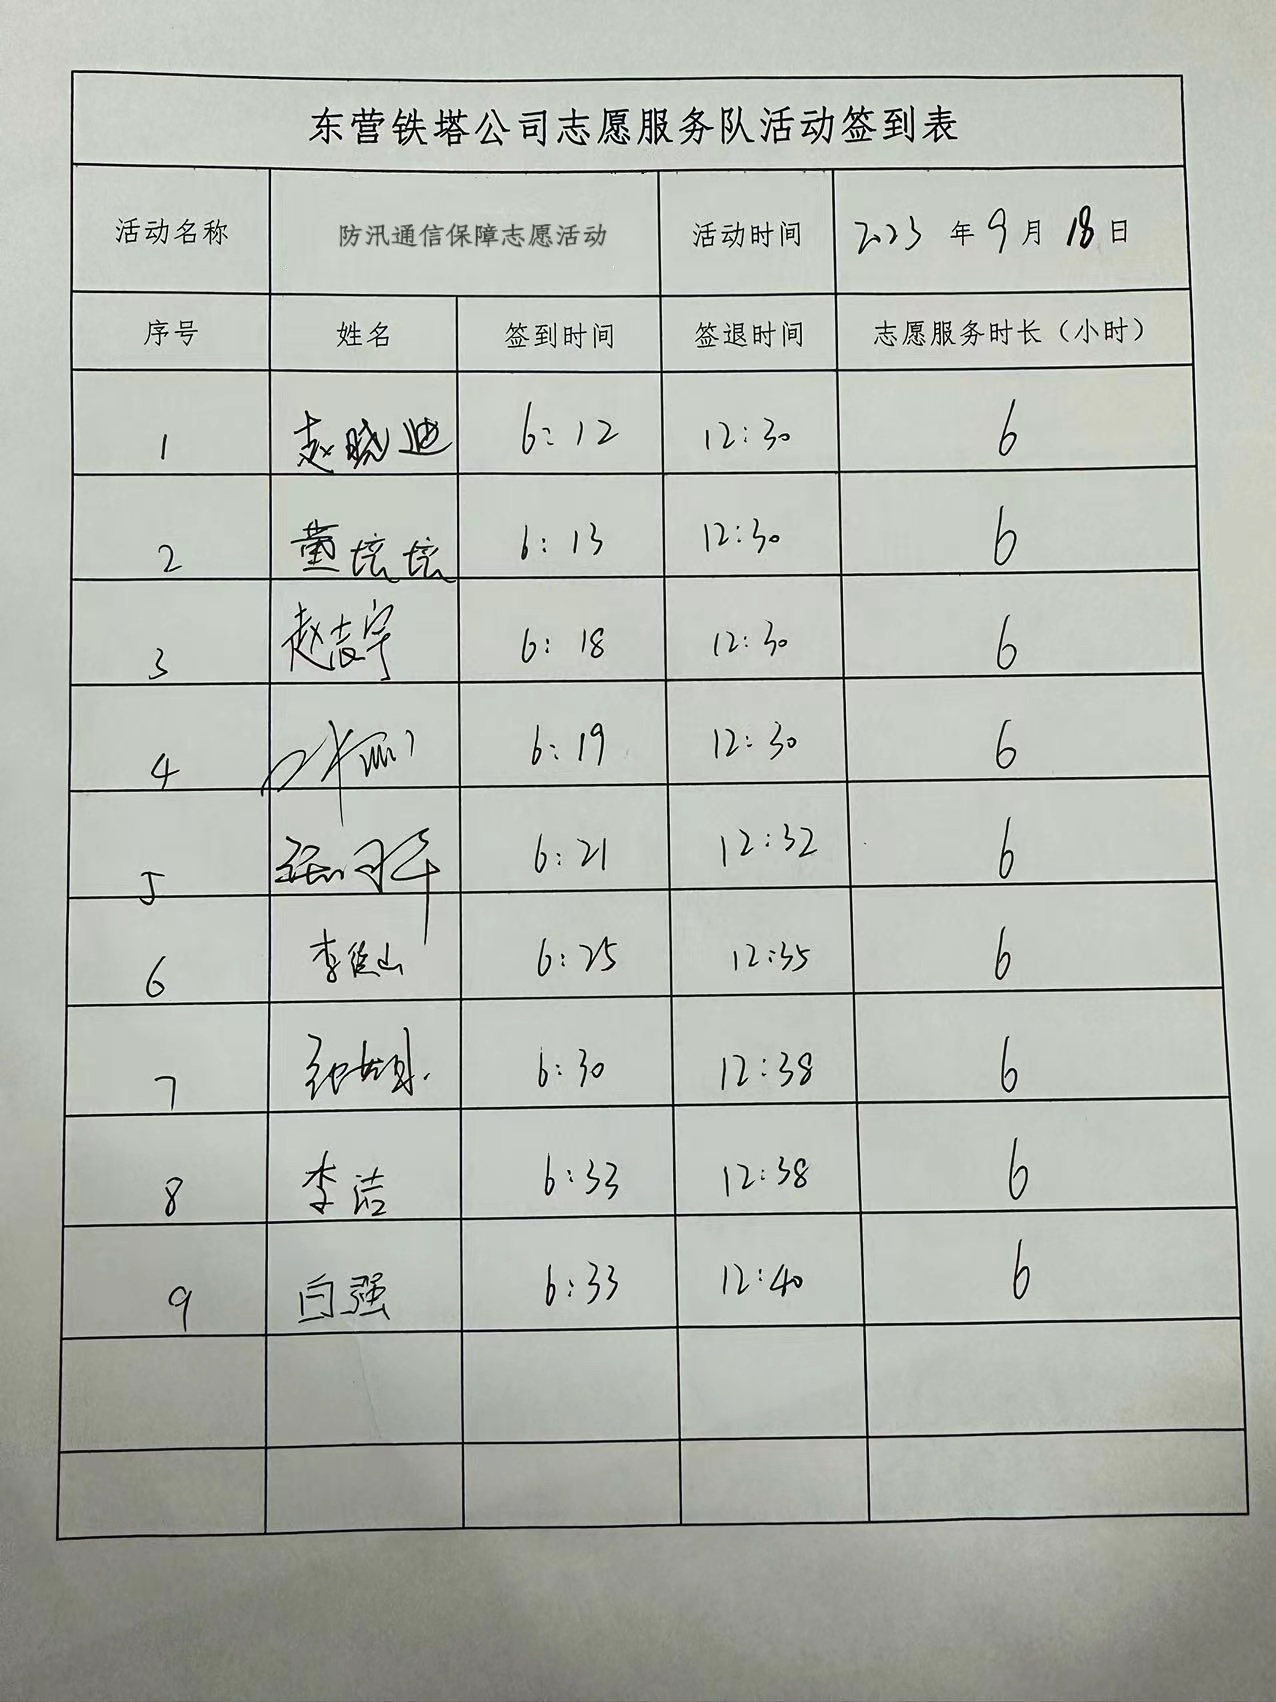 东营铁塔公司志愿服务队活动签到表
活动名称 防汛通信保障志愿活动 活动时间 2023 年 9 月 18 日
序号 姓名 签到时间 签退时间 志愿服务时长（小时）
1 赵晓迪 6:12 12:30 6
2 董坛坛 6:13 12:30 6
3 赵志宇 6:18 12:30 6
4 6:19 12:30 6
5 6:21 12:32 6
6 6:25 12:35 6
7 6:30 12:38 6
8 李洁 6:33 12:38 6
9 白强 6:33 12:40 6